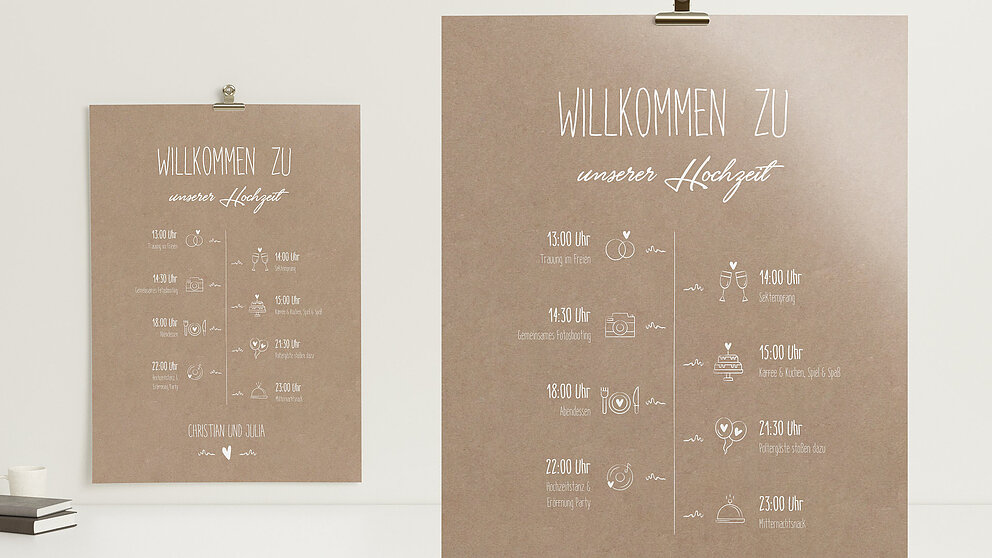 WILLKOMMEN ZU
unserer Hochzeit
13:00 Uhr
Trauung im Freien
14:00 Uhr
Sektempfang
14:30 Uhr
Gemeinsames Fotoshooting
15:00 Uhr
Kaffee & Kuchen, Spiel & Spaß
18:00 Uhr
Abendessen
21:30 Uhr
Poltergäste stoßen dazu
22:00 Uhr
Hochzeitstanz &
Eröffnung Party
23:00 Uhr
Mitternachtsnack
CHRISTIAN UND JULIA
WILLKOMMEN ZU
unserer Hochzeit
13:00 Uhr
Trauung im Freien
14:00 Uhr
Sektempfang
14:30 Uhr
Gemeinsames Fotoshooting
15:00 Uhr
Kaffee & Kuchen, Spiel & Spaß
18:00 Uhr
Abendessen
21:30 Uhr
Poltergäste stoßen dazu
22:00 Uhr
Hochzeitstanz &
Eröffnung Party
23:00 Uhr
Mitternachtsnack